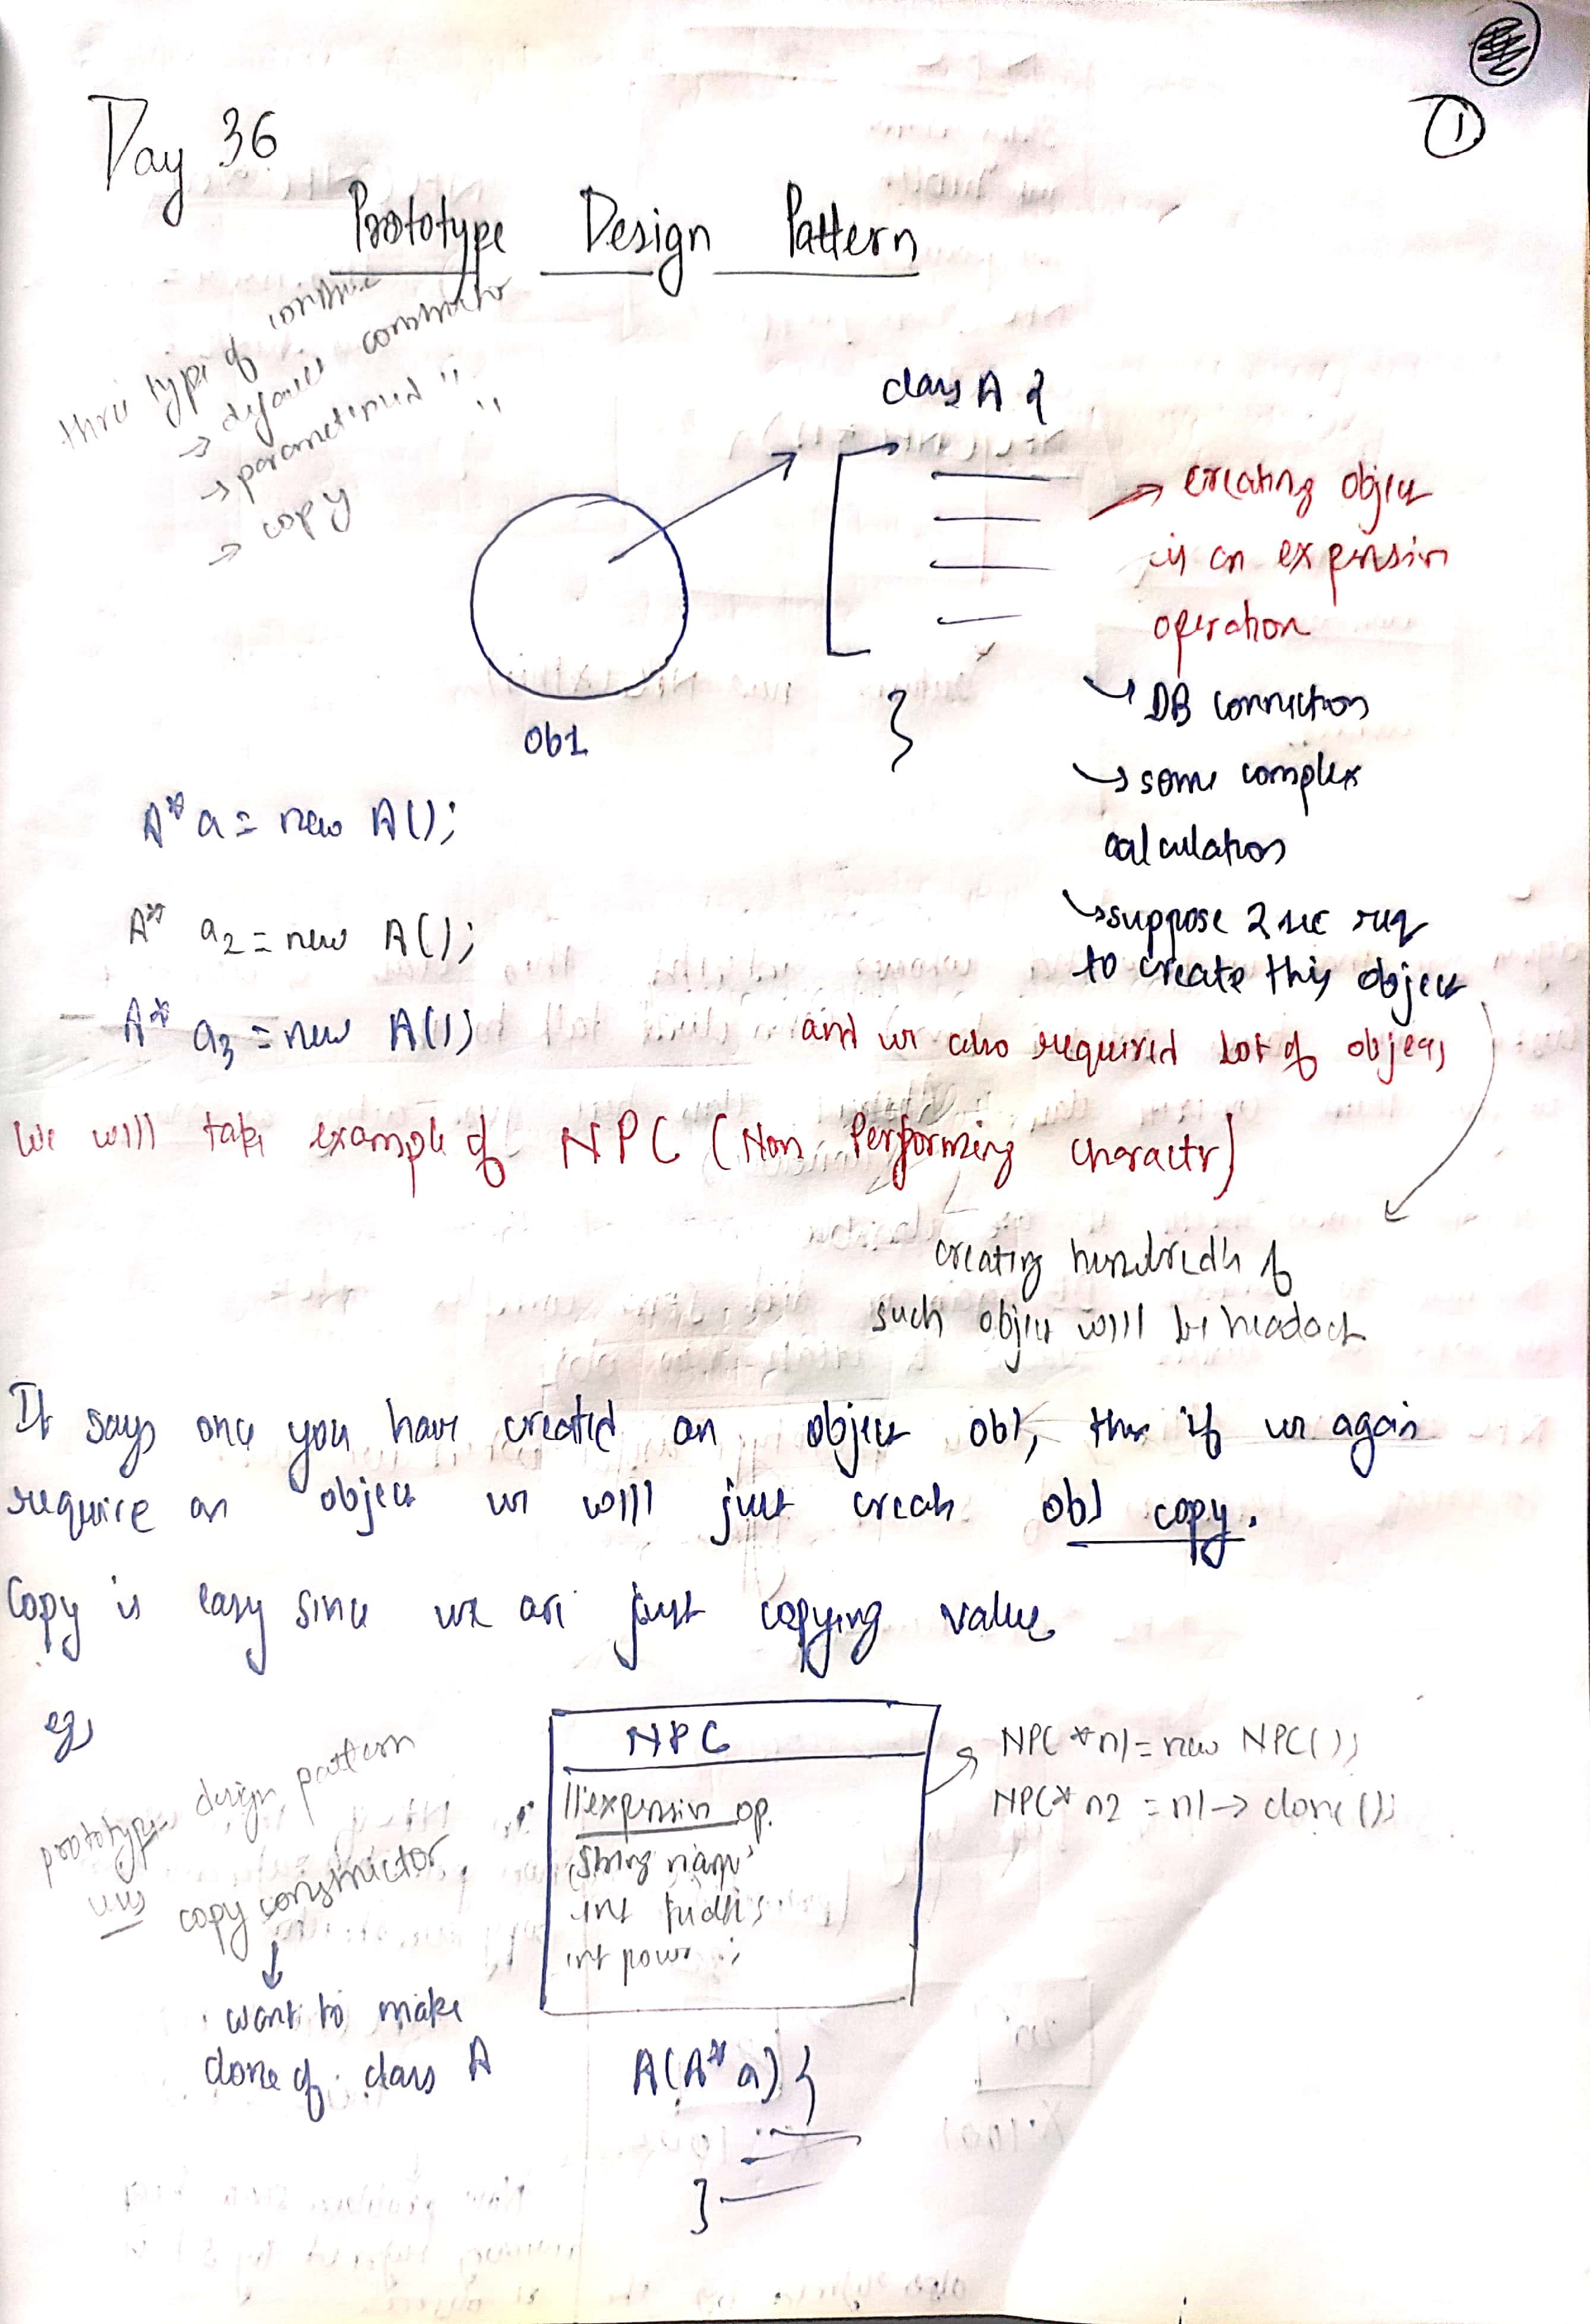 1
Day 36
Prototype Design Pattern
three type of
→ default constructor
→ parameterised "
→ copy "
class A {
}
ob1
→ creating object
is an expensive
operation
↳ DB connection
↳ some complex
calculation
↳ suppose 2 sec req
to create this object
and we also required lot of objects
A* a = new A();
A* a2 = new A();
A* a3 = new A()
We will take example of NPC (Non Performing character)
creating hundredth of
such object will be headach
It says once you have created an object ob1, then if we again
require an object we will just create ob1 copy.
Copy is easy since we are just copying value
eg,
prototype design pattern
uses copy constructor
↓
want to make
clone of class A
NPC
//expensive op.
string name;
int
int power;
NPC *n1 = new NPC();
NPC* n2 = n1 → clone();
A(A* a) {
}